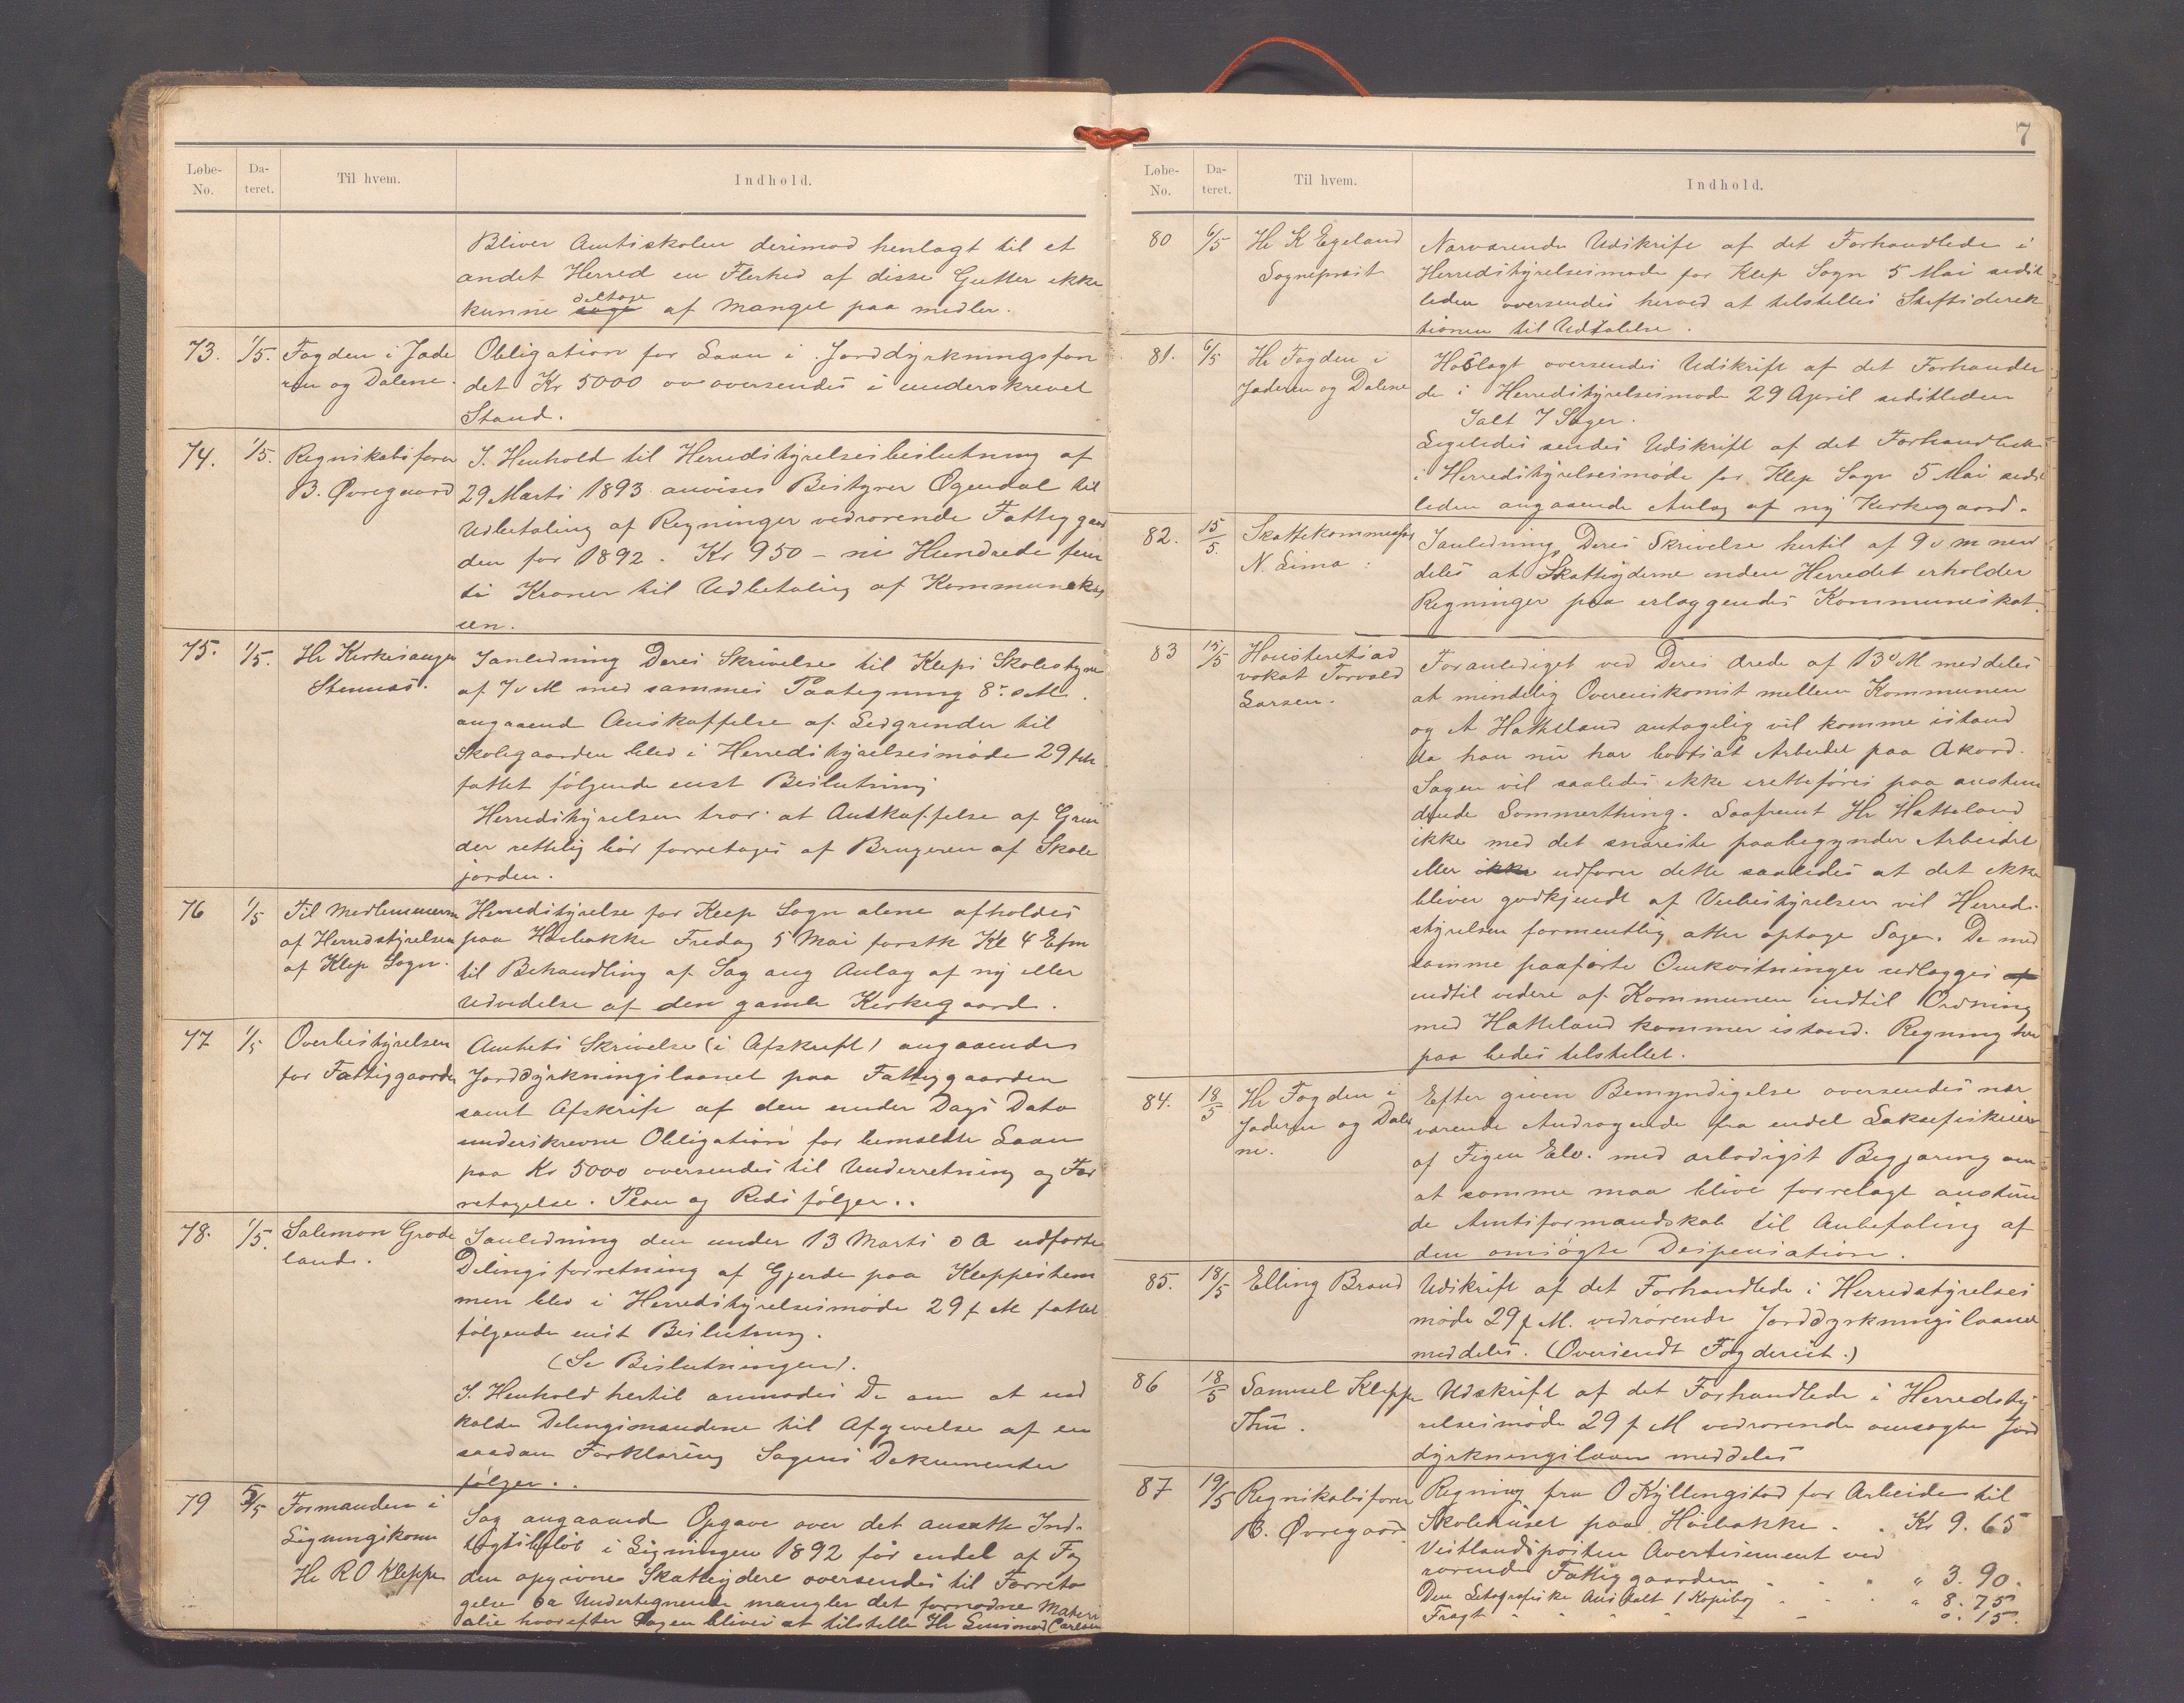 Løbe-No. Da-teret. Til hvem. Indhold.
Bliver Amtsskolen derimod henlagt til et
andet Herred en Flerhed af disse Gutter ikke
kunne deltage af Mangel paa midler.
73. 1/5. Fogden i Jæderen og Dalene.
Obligation for Laan i Jorddyrkningsfon
det Kr 5000 oversendes i underskrevet
Stand.
74. 1/5. Regnskabsfører B. Øvregaard
I. Henhold til Herredstyrelsesbeslutning af
29 Marts 1893 anvises Bestyrer Ogendal til
Udbetaling af Regninger vedrørende Fattiggaar
den for 1892. Kr 950 – ni Hundrede fem
ti Kroner til Udbetaling af Kommunekas
sen.
75. 1/5. Hr Kirkesanger Stennæs.
Ianledning Deres Skrivelse til Kleps Skolestyre
af 7 v M med sammes Paategning 8. s. M.
angaaend Anskaffelse af Ledgrinder til
Skolegaarden blev i Herredstyrelsesmøde 29
fattet følgende enst Beslutning
Herredstyrelsen tror at Anskaffelse af Grin
der rettelig bør forretages af Brugeren af Skole
jorden.
76 1/5 Til Medlemmerne af Herredstyrelsen af Klep Sogn.
Herredstyrelse for Klep Sogn alene afholdes
paa Høebakke Fredag 5 Mai førstk Kl 4 Efm
til Behandling af Sag ang Anlæg af ny eller
Udvidelse af den gamle Kirkegaard.
77 1/5 Overbestyrelsen for Fattiggaarden
Amtets Skrivelse (i Afskrift) angaaende
Jorddyrkningslaanet paa Fattiggaarden
samt Afskrift af den under Dags Dato
underskrevne Obligation for bemeldte Laan
paa Kr 5000 oversendes til Underretning og For
retagelse. Plan og Reds følger..
78. 1/5. Salemon Grødeland.
Ianledning den under 13 Marts d A udførte
Delingsforretning af Gjerde paa Kleppestem
men blev i Herredstyrelsesmøde 29 f M fattet
følgende enst Beslutning.
(Se Beslutningen).
I. Henhold hertil anmodes De om at ind
kalde Delingsmændene til Afgivelse af en
saadan Forklaring Sagens Dokumenter
følger..
79 5/5 Formanden i Ligningskom Hr R O Kleppe
Sag angaaend Opgave over det ansatte Ind-
tægtsbeløb i Ligningen 1892 for endel af Fog
den opgivne Skatteydere oversendes til Forreta
gelse da Undertegnende mangler det fornødne Materi
alie hvorefter Sagen bliver at tilstille Hr Carlsen
7
Løbe-No. Da-teret. Til hvem. Indhold.
80 6/5 Hr K Egeland Sogneprest
Nærværende Udskrift af det Forhandlede i
Herredstyrelsesmøde for Klep Sogn 5 Mai sidst
leden oversendes herved at tilstilles Stiftsdirek
tionen til Udtalelse.
81. 6/5 Hr Fogden i Jæderen og Dalene
Hoslagt oversendes Udskrift af det Forhandle
de i Herredstyrelsesmøde 29 April sidstleden
Ialt 7 Sager.
Ligeledes sendes Udskrift af det Forhandlede
i Herredstyrelsesmøde for Klep Sogn 5 Mai sidst
leden angaaende Anlæg af ny Kirkegaard.
82. 15/5. Skattekommissær N. Lima:
Ianledning Deres Skrivelse hertil af 9 v m med
deles at Skatteyderne inden Herredet erholder
Regninger paa erlæggendes Kommuneskat.
83 15/5 Høiesteretsadvokat Torvald Larsen.
Foranlediget ved Deres Ærede af 13 v M meddeles
at mindelig Overenskomst mellem Kommunen
og A Hatteland antagelig vil komme istand
da han nu har bortsat Arbeidet paa Akord.
Sagen vil saaledes ikke iretteføres paa anstun
dende Sommerthing. Saafremt Hr Hatteland
ikke med det snareste paabegynder Arbeidet
eller ikke udfører dette saaledes at det ikke
bliver godkjendt af Veibestyrelsen vil Herreds-
styrelsen formentlig atter optage Sagen. De med
samme paaførte Omkostninger udlægges af
indtil videre af Kommunen indtil Ordning
med Hatteland kommer istand. Regning her
paa bedes tilstillet.
84. 18/5 Hr Fogden i Jæderen og Dalene.
Efter given Bemyndigelse oversendes nær
værende Andragende fra endel Laksefiskeiere
af Figen Elv. med ærbødigst Begjæring om
at samme maa blive forrelagt anstun
de Amtsformandskab til Anbefaling af
den omsøgte Dispensation.
85. 18/5 Elling Braud
Udskrift af det Forhandlede i Herredstyrelses
møde 29 f M. vedrørende Jorddyrkningslaanet
meddeles. (Oversendt Fogderiet.)
86 18/5 Samuel Kleppe Thu.
Udskrift af det Forhandlede i Herredsty
relsesmøde 29 f M vedrørende omsøgte Jord
dyrkningslaan meddeles
87 19/5 Regnskabsfører B. Øvregaard
Regning fra O Kyllingstad for Arbeide til
Skolehuset paa Høiebakke . . Kr 9.65
Vestlandsposten Avertisement ved
rørende Fattiggaarden . . . " 3.90.
Den Litografiske Anstalt 1 Kopibog . . . " 8.75
Fragt " " " " " 0.15.